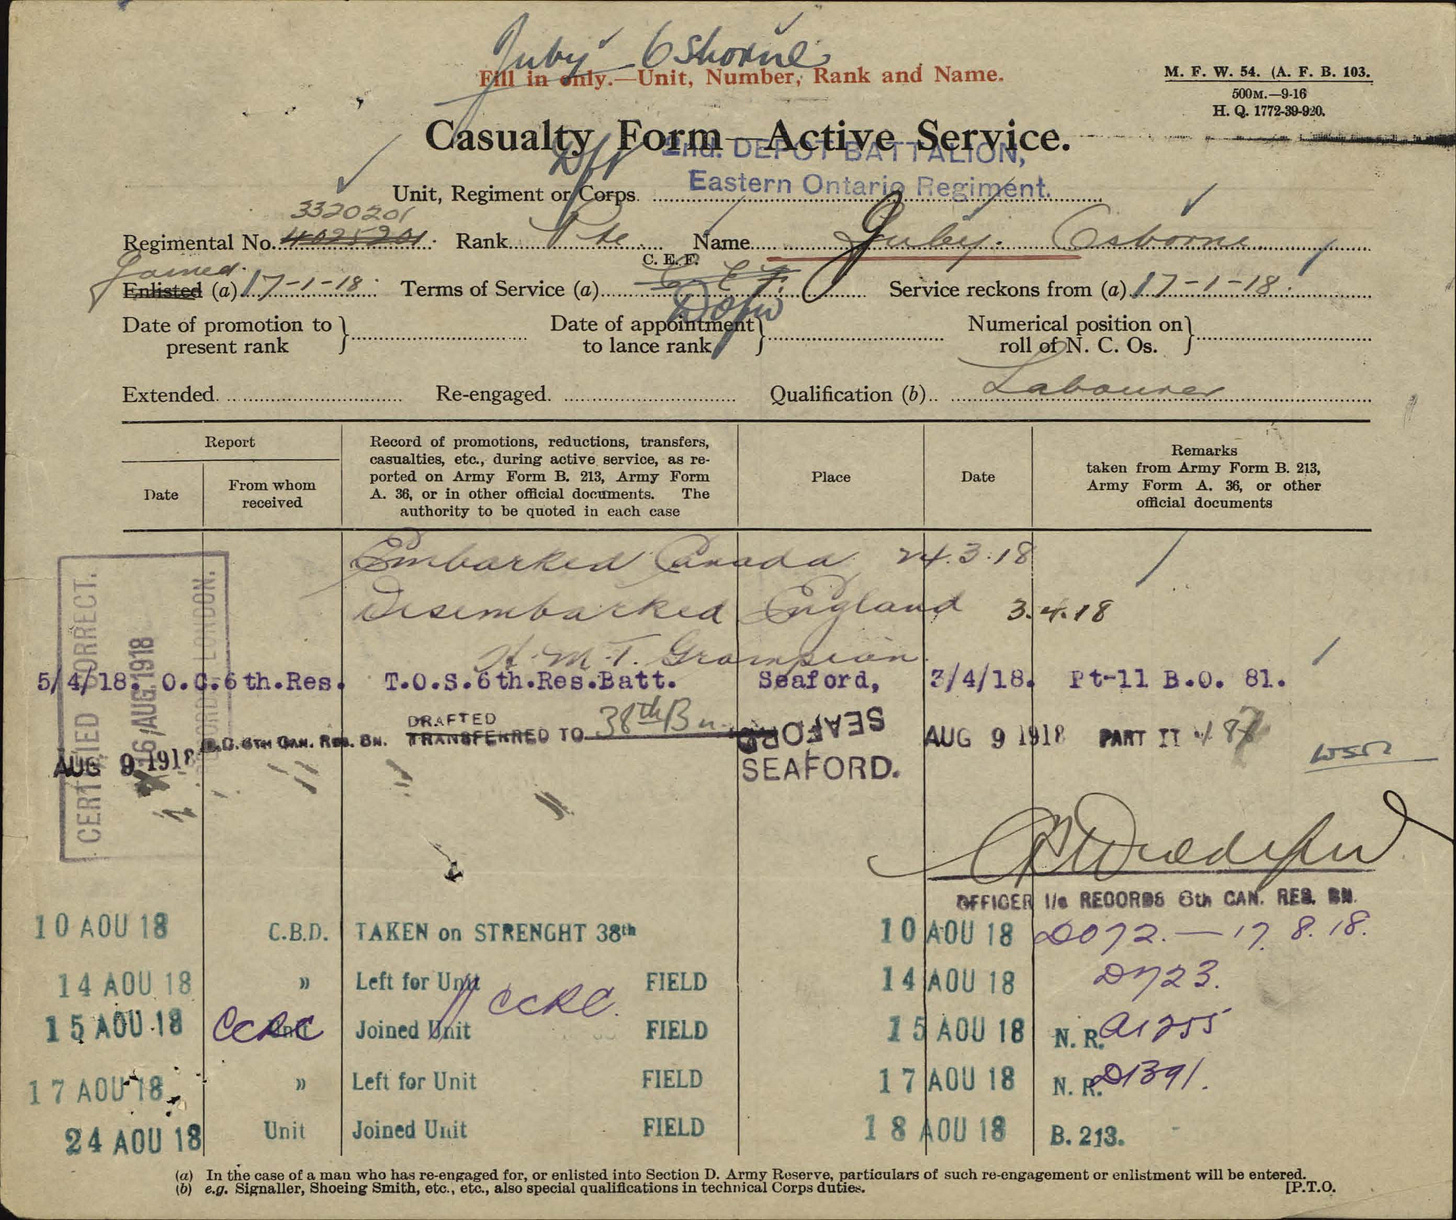 Juby Osborne
Fill in only.—Unit, Number, Rank and Name.
M. F. W. 54. (A. F. B. 103.
500M.—9-16
H. Q. 1772-39-920.
Casualty Form—Active Service.
2nd. DEPOT BATTALION,
Eastern Ontario Regiment.
Unit, Regiment or Corps
3320201
Regimental No. 4025201 Rank Pte Name Juby. Osborne
Joined. C. E. F.
Enlisted (a) 17-1-18 Terms of Service (a) C E F. Service reckons from (a) 17-1-18.
Date of promotion to present rank } Date of appointment to lance rank } Numerical position on roll of N. C. Os. }
Extended. Re-engaged. Qualification (b) Labourer
Report
Date
From whom received
Record of promotions, reductions, transfers, casualties, etc., during active service, as reported on Army Form B. 213, Army Form A. 36, or in other official documents. The authority to be quoted in each case
Place
Date
Remarks taken from Army Form B. 213, Army Form A. 36, or other official documents
Embarked Canada 24.3.18
Disembarked England 3.4.18
H.M.T. Grampian
CERTIFIED CORRECT.
16/AUG.1918
LONDON.
5/4/18. O.C.6th.Res. T.O.S.6th.Res.Batt. Seaford, 3/4/18. Pt-11 B.O. 81.
AUG 9 1918 O.C. 6TH CAN. RES. BN. DRAFTED TRANSFERRED TO 38th Bn SEAFORD SEAFORD. AUG 9 1918 PART II 187
OFFICER I/c RECORDS 6th CAN. RES. BN.
10 AOU 18 C.B.D. TAKEN on STRENGHT 38th 10 AOU 18 DO72.—17.8.18.
14 AOU 18 » Left for Unit CCRC FIELD 14 AOU 18 D723.
15 AOU 18 CCRC Unit Joined Unit FIELD 15 AOU 18 N. R. A1255
17 AOU 18 » Left for Unit FIELD 17 AOU 18 N. R. D1391.
24 AOU 18 Unit Joined Unit FIELD 18 AOU 18 B. 213.
(a) In the case of a man who has re-engaged for, or enlisted into Section D. Army Reserve, particulars of such re-engagement or enlistment will be entered.
(b) e.g. Signaller, Shoeing Smith, etc., etc., also special qualifications in technical Corps duties. [P.T.O.